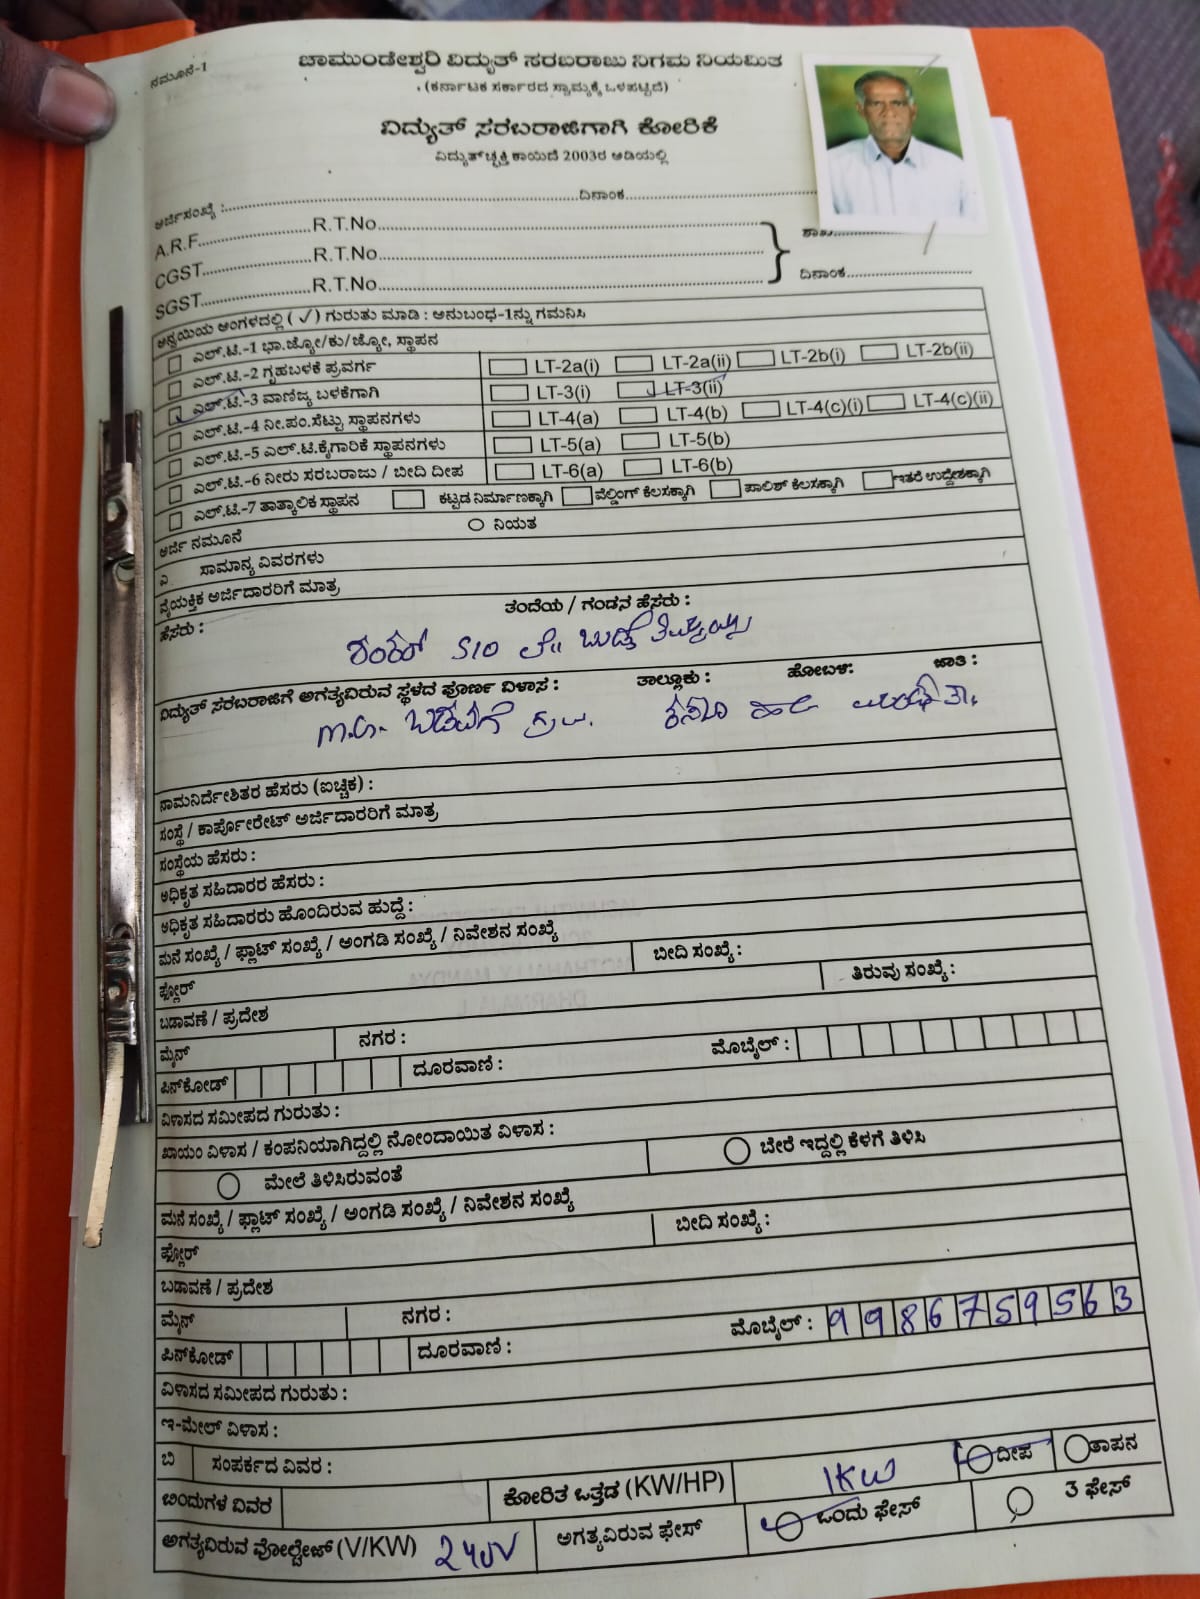 ನಮೂನೆ-1
ಚಾಮುಂಡೇಶ್ವರಿ ವಿದ್ಯುತ್ ಸರಬರಾಜು ನಿಗಮ ನಿಯಮಿತ
(ಕರ್ನಾಟಕ ಸರ್ಕಾರದ ಸ್ವಾಮ್ಯಕ್ಕೆ ಒಳಪಟ್ಟಿದೆ)
ವಿದ್ಯುತ್ ಸರಬರಾಜಿಗಾಗಿ ಕೋರಿಕೆ
ವಿದ್ಯುತ್‌ಚ್ಛಕ್ತಿ ಕಾಯಿದೆ 2003ರ ಅಡಿಯಲ್ಲಿ
ಅರ್ಜಿಸಂಖ್ಯೆ : ದಿನಾಂಕ
A.R.F. R.T.No
CGST R.T.No
SGST R.T.No ದಿನಾಂಕ
ಅನ್ವಯಿಯ ಅಂಗಳದಲ್ಲಿ (✓) ಗುರುತು ಮಾಡಿ : ಅನುಬಂಧ-1ನ್ನು ಗಮನಿಸಿ
ಎಲ್.ಟಿ.-1 ಭಾ.ಜ್ಯೋ/ಕು/ಜ್ಯೋ, ಸ್ಥಾಪನ
ಎಲ್.ಟಿ.-2 ಗೃಹಬಳಕೆ ಪ್ರವರ್ಗ LT-2a(i) LT-2a(ii) LT-2b(i) LT-2b(ii)
ಎಲ್.ಟಿ.-3 ವಾಣಿಜ್ಯ ಬಳಕೆಗಾಗಿ LT-3(i) LT-3(ii)
ಎಲ್.ಟಿ.-4 ನೀ.ಪಂ.ಸೆಟ್ಟು ಸ್ಥಾಪನಗಳು LT-4(a) LT-4(b) LT-4(c)(i) LT-4(c)(ii)
ಎಲ್.ಟಿ.-5 ಎಲ್.ಟಿ.ಕೈಗಾರಿಕೆ ಸ್ಥಾಪನಗಳು LT-5(a) LT-5(b)
ಎಲ್.ಟಿ.-6 ನೀರು ಸರಬರಾಜು / ಬೀದಿ ದೀಪ LT-6(a) LT-6(b)
ಎಲ್.ಟಿ.-7 ತಾತ್ಕಾಲಿಕ ಸ್ಥಾಪನ ಕಟ್ಟಡ ನಿರ್ಮಾಣಕ್ಕಾಗಿ ವೆಲ್ಡಿಂಗ್ ಕೆಲಸಕ್ಕಾಗಿ ಪಾಲಿಶ್ ಕೆಲಸಕ್ಕಾಗಿ ಇತರೆ ಉದ್ದೇಶಕ್ಕಾಗಿ
ಅರ್ಜಿ ನಮೂನೆ ನಿಯತ
ಎ ಸಾಮಾನ್ಯ ವಿವರಗಳು
ವೈಯಕ್ತಿಕ ಅರ್ಜಿದಾರರಿಗೆ ಮಾತ್ರ
ಹೆಸರು : ತಂದೆಯ / ಗಂಡನ ಹೆಸರು :
ಶಂಕರ್ S/O ಲೇ||
ವಿದ್ಯುತ್ ಸರಬರಾಜಿಗೆ ಅಗತ್ಯವಿರುವ ಸ್ಥಳದ ಪೂರ್ಣ ವಿಳಾಸ : ತಾಲ್ಲೂಕು : ಹೋಬಳಿ: ಜಾತಿ :
m.G. ಬಡಾವಣೆ
ನಾಮನಿರ್ದೇಶಿತರ ಹೆಸರು (ಐಚ್ಚಿಕ) :
ಸಂಸ್ಥೆ / ಕಾರ್ಪೋರೇಟ್ ಅರ್ಜಿದಾರರಿಗೆ ಮಾತ್ರ
ಸಂಸ್ಥೆಯ ಹೆಸರು :
ಅಧಿಕೃತ ಸಹಿದಾರರ ಹೆಸರು :
ಅಧಿಕೃತ ಸಹಿದಾರರು ಹೊಂದಿರುವ ಹುದ್ದೆ :
ಮನೆ ಸಂಖ್ಯೆ / ಫ್ಲಾಟ್ ಸಂಖ್ಯೆ / ಅಂಗಡಿ ಸಂಖ್ಯೆ / ನಿವೇಶನ ಸಂಖ್ಯೆ
ಫ್ಲೋರ್ ಬೀದಿ ಸಂಖ್ಯೆ :
ಬಡಾವಣೆ / ಪ್ರದೇಶ ತಿರುವು ಸಂಖ್ಯೆ :
ಮೈನ್ ನಗರ :
ಪಿನ್‌ಕೋಡ್ ದೂರವಾಣಿ : ಮೊಬೈಲ್ :
ವಿಳಾಸದ ಸಮೀಪದ ಗುರುತು :
ಖಾಯಂ ವಿಳಾಸ / ಕಂಪನಿಯಾಗಿದ್ದಲ್ಲಿ ನೋಂದಾಯಿತ ವಿಳಾಸ :
ಮೇಲೆ ತಿಳಿಸಿರುವಂತೆ ಬೇರೆ ಇದ್ದಲ್ಲಿ ಕೆಳಗೆ ತಿಳಿಸಿ
ಮನೆ ಸಂಖ್ಯೆ / ಫ್ಲಾಟ್ ಸಂಖ್ಯೆ / ಅಂಗಡಿ ಸಂಖ್ಯೆ / ನಿವೇಶನ ಸಂಖ್ಯೆ
ಫ್ಲೋರ್ ಬೀದಿ ಸಂಖ್ಯೆ :
ಬಡಾವಣೆ / ಪ್ರದೇಶ
ಮೈನ್ ನಗರ :
ಪಿನ್‌ಕೋಡ್ ದೂರವಾಣಿ : ಮೊಬೈಲ್ : 9986759563
ವಿಳಾಸದ ಸಮೀಪದ ಗುರುತು :
ಇ-ಮೇಲ್ ವಿಳಾಸ :
ಬಿ ಸಂಪರ್ಕದ ವಿವರ :
ಬಿಂದುಗಳ ವಿವರ ಕೋರಿತ ಒತ್ತಡ (KW/HP) 1KW ದೀಪ ತಾಪನ
ಅಗತ್ಯವಿರುವ ವೋಲ್ಟೇಜ್ (V/KW) 240V ಅಗತ್ಯವಿರುವ ಫೇಸ್ ಒಂದು ಫೇಸ್ 3 ಫೇಸ್